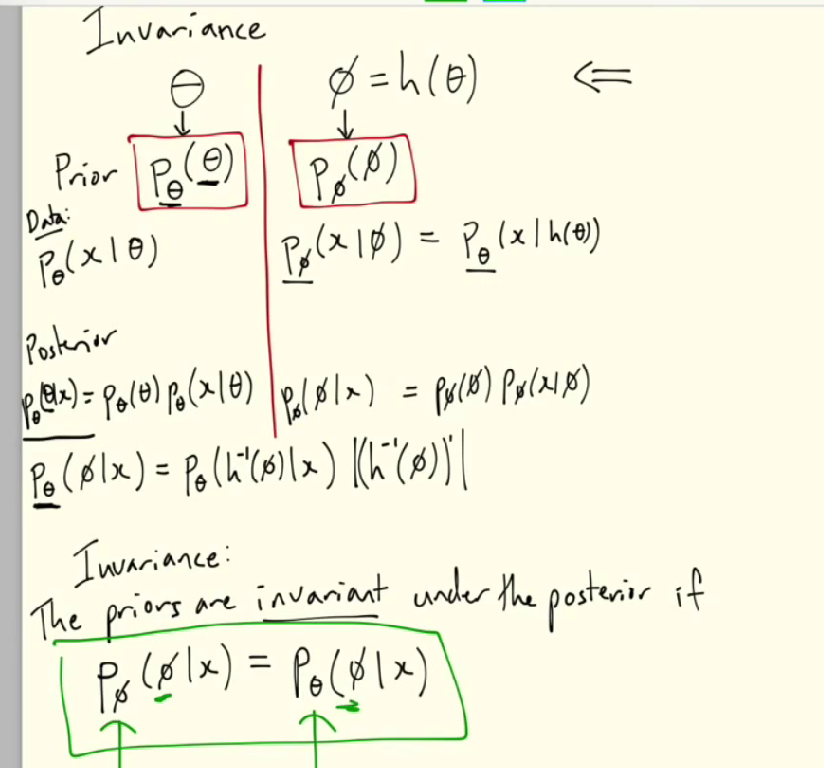 Invariance
θ ϕ = h(θ) ⇐
↓ ↓
Prior P_θ(θ) P_ϕ(ϕ)
Data:
P_θ(x|θ) P_ϕ(x|ϕ) = P_θ(x|h(θ))
Posterior
P_θ(θ|x) = P_θ(θ) P_θ(x|θ) P_ϕ(ϕ|x) = P_ϕ(ϕ) P_ϕ(x|ϕ)
P_θ(ϕ|x) = P_θ(h⁻¹(ϕ)|x) |(h⁻¹(ϕ))'|
Invariance:
The priors are invariant under the posterior if
P_ϕ(ϕ|x) = P_θ(ϕ|x)